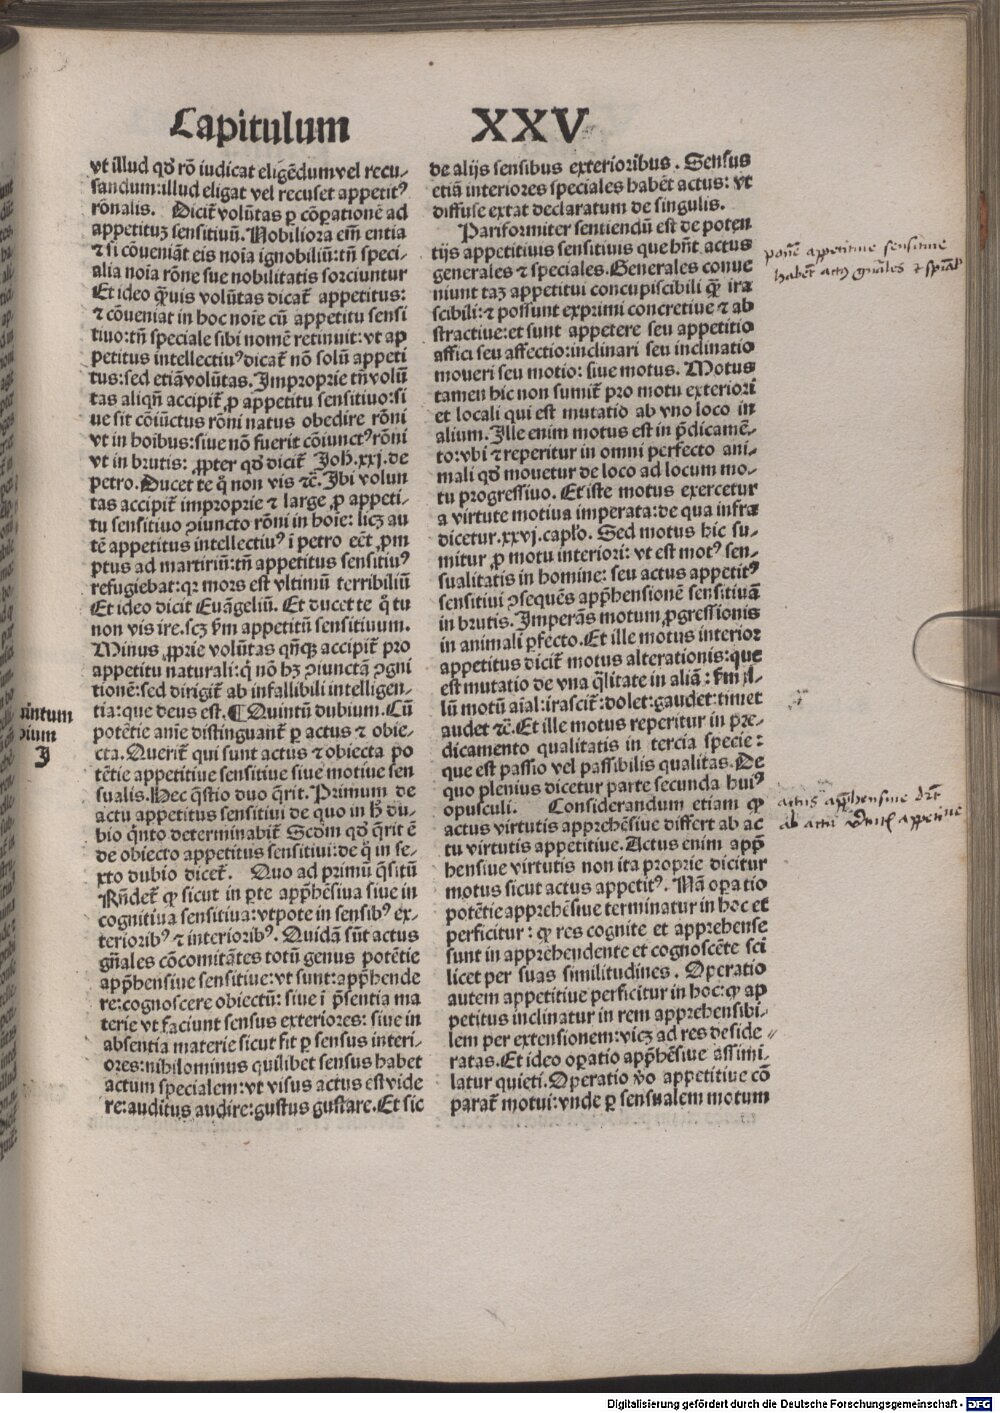 Capitulum XXV
vt illud qď rō iudicat eligēdum vel recu-
sandum: illud eligat vel recuset appetitꝰ
rōnalis. Dicit̄ volūtas ꝑ cōꝑationē ad
appetituꝫ sensitiuū. Nobiliora em̄ entia
⁊ si cōueniāt eis noīa ignobiliū: tn̄ speci-
alia noīa rōne sue nobilitatis sorciuntur
Et ideo q̄uis volūtas dicat̄ appetitus:
⁊ cōueniat in hoc noīe cū appetitu sensi
tiuo: tn̄ speciale sibi nomē retinuit: vt ap
petitus intellectiuꝰ dicat̄ nō solū appeti
tus: sed etiā volūtas. Improprie tn̄ volū
tas aliqn̄ accipit̄ ꝓ appetitu sensitiuo: si
ue sit cōiūctus rōni natus obedire rōni
vt in hoībus: siue nō fuerit cōiunctꝰ rōni
vt in brutis: ꝓpter qď dicit̄ Joh. xxj. de
petro. Ducet te q̊ non vis ⁊c̄. Ibi volun
tas accipit̄ improprie ⁊ large ꝓ appeti-
tu sensitiuo ꝯiuncto rōni in hoīe: licꝫ au
tē appetitus intellectiuꝰ ī petro eēt ꝓm
ptus ad martiriū: tn̄ appetitus sensitiuꝰ
refugiebat: qꝛ mors est vltimū terribiliū
Et ideo dicit Euāgeliū. Et ducet te q̊ tu
non vis ire. scꝫ ẜm appetitū sensitiuum.
Minus ꝓprie volūtas qn̄qꝫ accipit̄ pro
appetitu naturali: q̇ nō hꝫ ꝯiunctā ꝯgni
tionē: sed dirigit̄ ab infallibili intelligen-
tia: que deus est. ¶ Quintū dubium. Cū
potētie anīe distinguant̄ ꝑ actus ⁊ obie-
cta. Querit̄ qui sunt actus ⁊ obiecta po
tētie appetitiue sensitiue siue motiue sen
sualis. Hec q̄stio duo q̄rit. Primum de
actu appetitus sensitiui de quo in h̄ du-
bio q̇nto determinabit̄ Scďm qď q̄rit ē
de obiecto appetitus sensitiui: de q̊ in se-
xto dubio dicet̄. Quo ad primū q̄sitū
Rn̄det̄ ꝙ sicut in ꝑte app̄hēsiua siue in
cognitiua sensitiua: vtpote in sensibꝰ ex-
terioribꝰ ⁊ interioribꝰ. Quidā sūt actus
gn̄ales cōcomitātes totū genus potētie
app̄hensiue sensitiue: vt sunt: app̄hende
re: cognoscere obiectū: siue ī p̄sentia ma
terie vt faciunt sensus exteriores: siue in
absentia materie sicut fit ꝑ sensus interi-
ores: nihilominus quilibet sensus habet
actum specialem: vt visus actus est vide
re: auditus audire: gustus gustare. Et sic
de alijs sensibus exterioribus. Sensus
etiā interiores speciales habēt actus: vt
diffuse extat declaratum de singulis.
Pariformiter sentiendū est de poten
tijs appetitiuis sensitiuis que hn̄t actus
generales ⁊ speciales. Generales conue
niunt taꝫ appetitui concupiscibili q̄ꝫ ira
scibili: ⁊ possunt exprimi concretiue ⁊ ab
stractiue: et sunt appetere seu appetitio
affici seu affectio: inclinari seu inclinatio
moueri seu motio: siue motus. Motus
tamen hic non sumit̄ pro motu exteriori
et locali qui est mutatio ab vno loco in
alium. Ille enim motus est in p̄dicamē-
to: vbi ⁊ reperitur in omni perfecto ani-
mali qď mouetur de loco ad locum mo-
tu progressiuo. Et iste motus exercetur
a virtute motiua imperata: de qua infra
dicetur. xxvj. cap̄lo. Sed motus hic su-
mitur ꝓ motu interiori: vt est motꝰ sen-
sualitatis in homine: seu actus appetitꝰ
sensitiui ꝯsequēs app̄hensionē sensitiuā
in brutis. Imperās motum ꝓgressionis
in animali ꝑfecto. Et ille motus interior
appetitus dicit̄ motus alterationis: que
est mutatio de vna q̄litate in aliā: ẜm il-
lū motū aīal: irascit̄: dolet: gaudet: timet
audet ⁊c̄. Et ille motus reperitur in pre-
dicamento qualitatis in tercia specie:
que est passio vel passibilis qualitas. De
quo plenius dicetur parte secunda huiꝰ
opusculi. Considerandum etiam ꝙ
actus virtutis apprehēsiue differt ab ac
tu virtutis appetitiue. Actus enim app̄
hensiue virtutis non ita proprie dicitur
motus sicut actus appetitꝰ. Nā oꝑatio
potētie apprehēsiue terminatur in hoc et
perficitur: ꝙ res cognite et apprehense
sunt in apprehendente et cognoscēte sci
licet per suas similitudines. Operatio
autem appetitiue perficitur in hoc: ꝙ ap
petitus inclinatur in rem apprehensibi-
lem per extensionem: vicꝫ ad res deside-
ratas. Et ideo oꝑatio app̄hēsiue assimi-
latur quieti. Operatio v̊o appetitiue cō
parat̄ motui: vnde ꝑ sensualem motum
uintum
bium
J
poñe appetitiue sensitiue
habēt actꝰ gn̄ales ⁊ sp̄ial
actus app̄hensiue
ab actu appetitiue
Digitalisierung gefördert durch die Deutsche Forschungsgemeinschaft - DFG